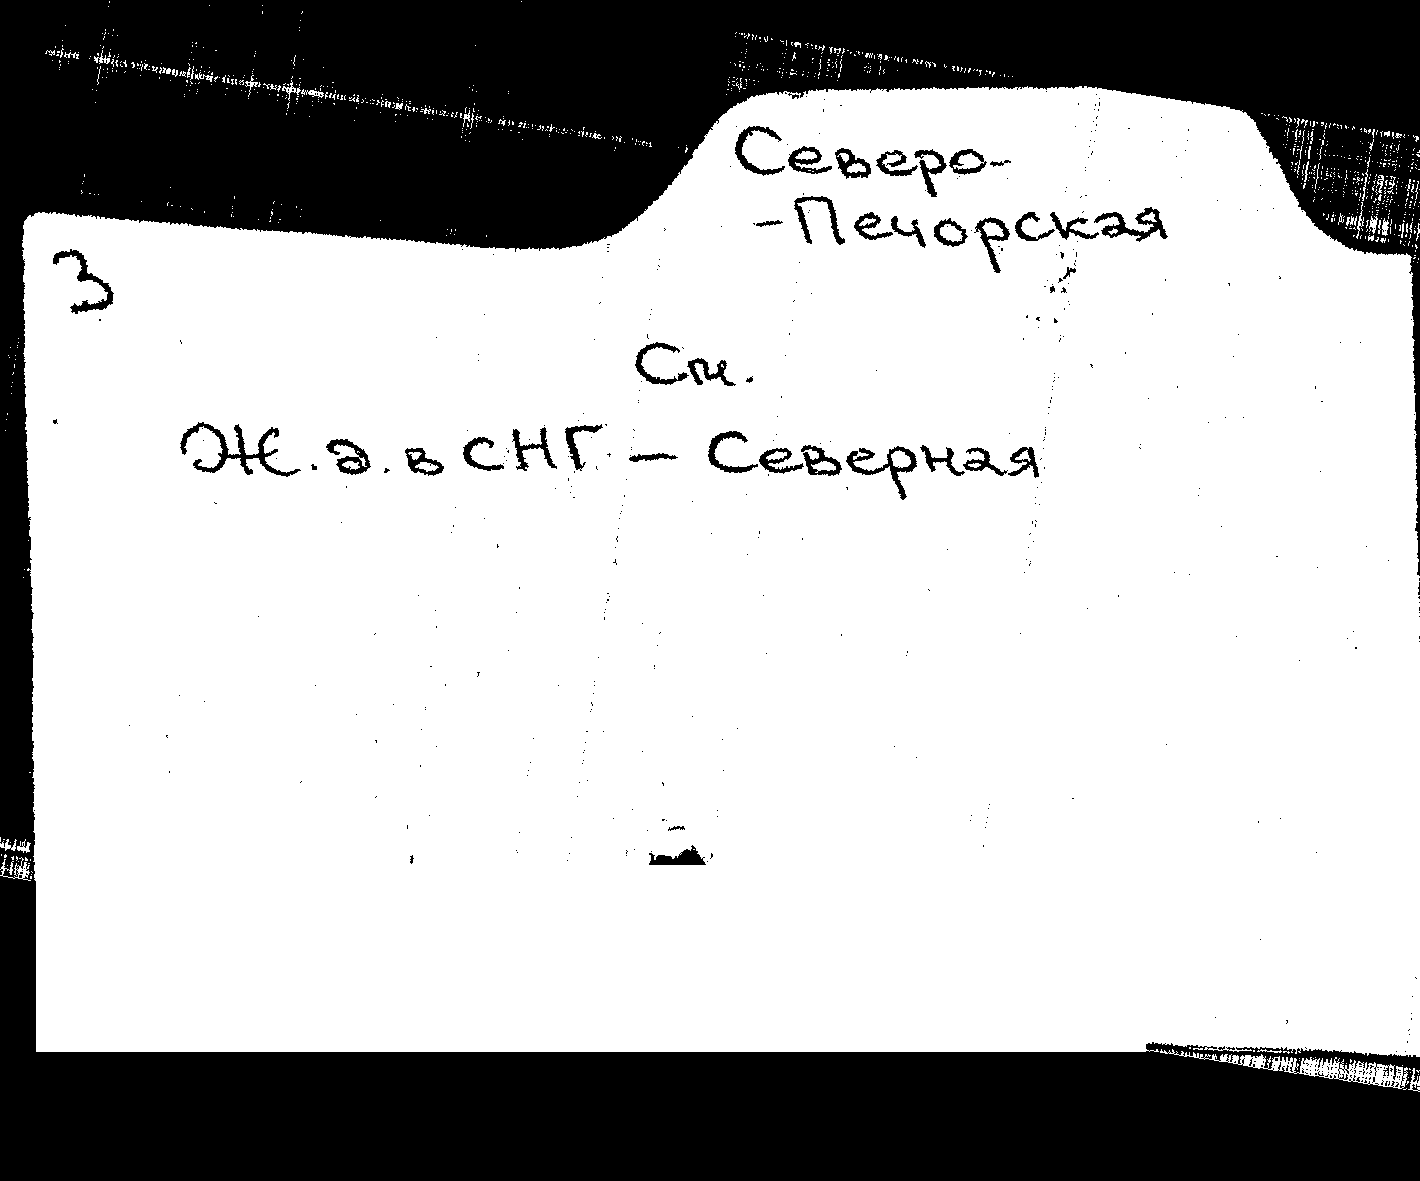 Северо-
-Печорская
3
См.
Ж.д. в СНГ - Северная